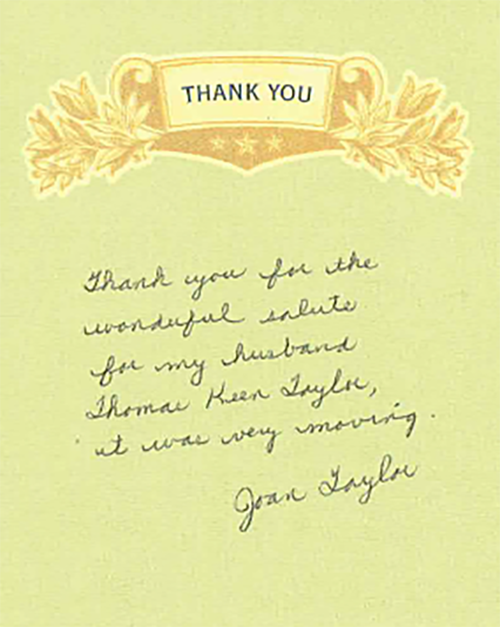 THANK YOU
Thank you for the
wonderful salute
for my husband
Thomas Keen Taylor,
it was very moving.
Joan Taylor